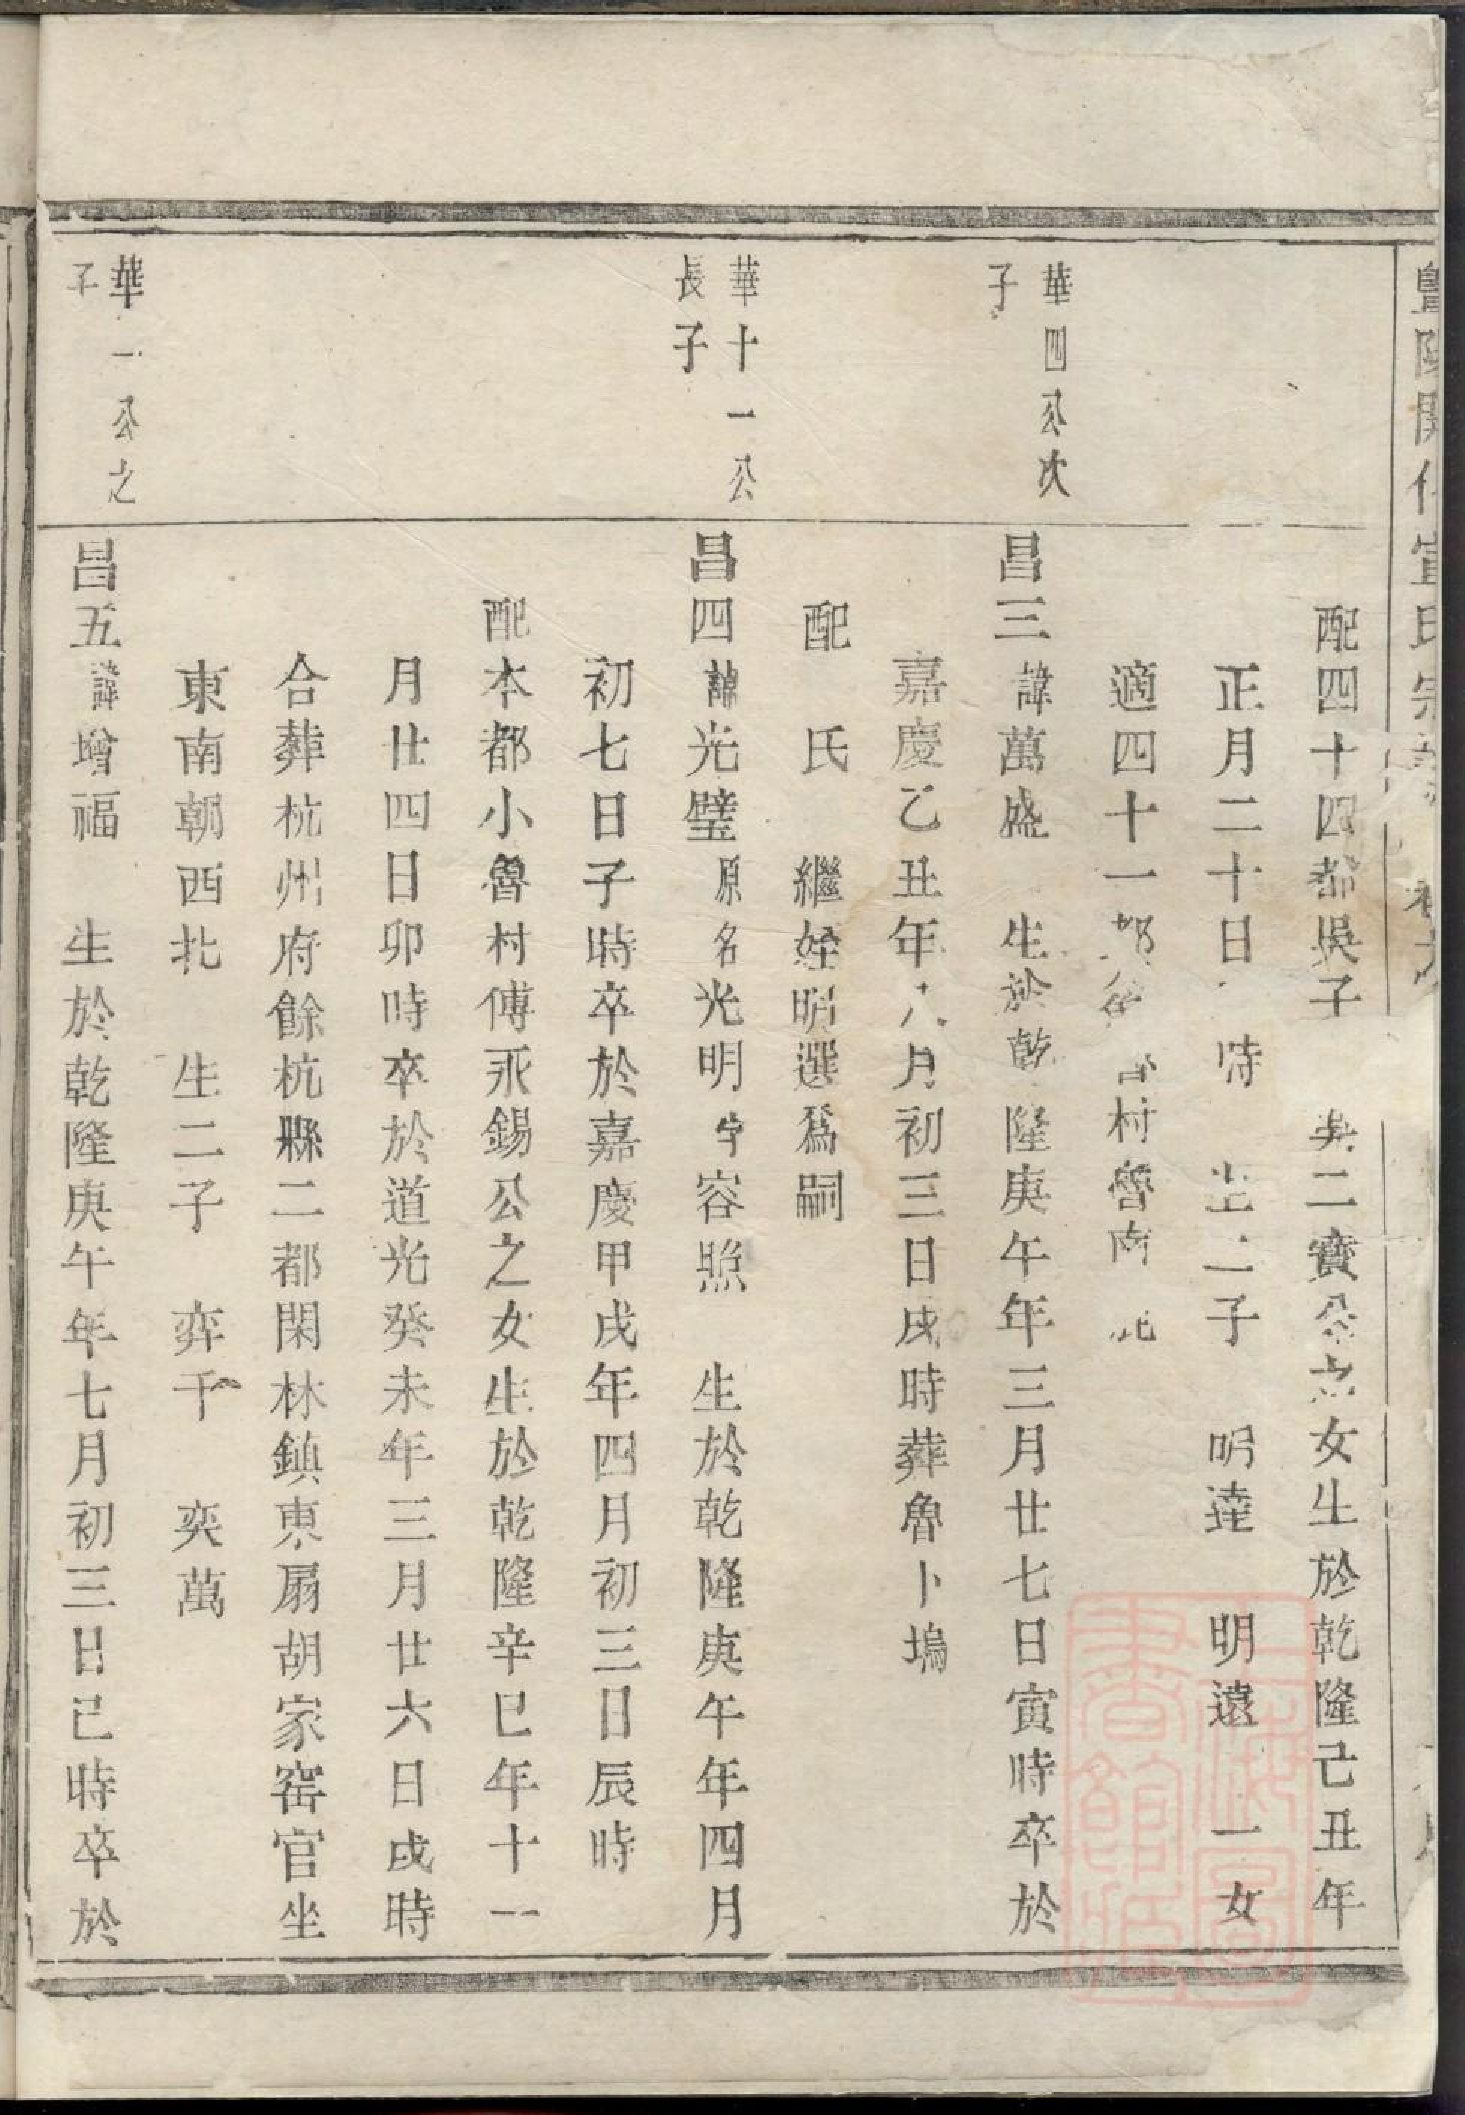 暨陽開化宣氏宗
配四十四都吳子 吳二寶公之女生於乾隆己丑年
正月二十日 時 生二子 明達 明遠 一女
適四十一都 村魯南
華四公次
子
昌三諱萬盛 生於乾隆庚午年三月廿七日寅時卒於
嘉慶乙丑年八月初三日戌時葬魯卜塢
配 氏 繼姪明選為嗣
華十一公
長子
昌四諱光璧原名光明字容照 生於乾隆庚午年四月
初七日子時卒於嘉慶甲戌年四月初三日辰時
配本都小魯村傅永錫公之女生於乾隆辛巳年十一
月廿四日卯時卒於道光癸未年三月廿六日戌時
合葬杭州府餘杭縣二都閑林鎮東扇胡家窰官坐
東南朝西北 生二子 弈千 奕萬
華一公之
子
昌五諱增福 生於乾隆庚午年七月初三日巳時卒於